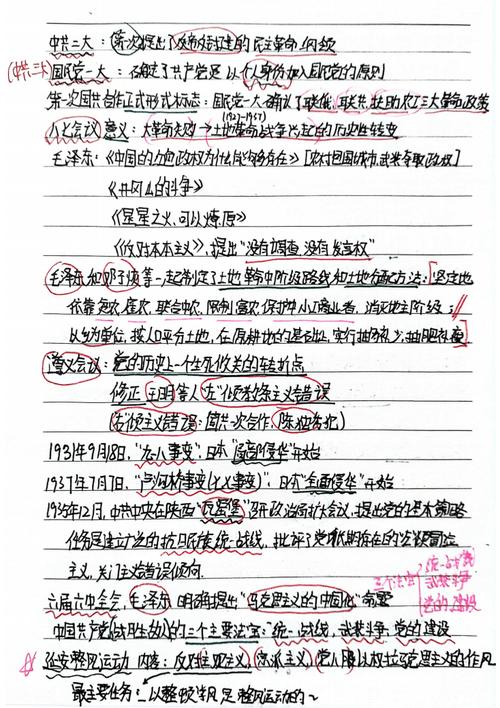 中共二大：第一次提出了反帝反封建的民主革命纲领
(中共三大) 国民党一大：确定了共产党是以个人身份加入国民党的原则
第一次国共合作正式形式标志：国民党一大确认了联俄、联共、扶助农工三大革命政策
(1927-1937)
八七会议意义：大革命失败→土地革命战争兴起的历史性转变
毛泽东：《中国的红色政权为什么能够存在》[农村包围城市,武装夺取政权]
《井冈山的斗争》
《星星之火,可以燎原》
《反对本本主义》,提出"没有调查,没有发言权"
毛泽东和邓子恢等一起制定了土地革命中阶级路线和土地分配方法：[坚定地
依靠贫农、雇农,联合中农,限制富农,保护中小工商业者,消灭地主阶级；
以乡为单位,按人口平分土地,在原耕地的基础上,实行抽多补少,抽肥补瘦]
遵义会议：党的历史上一个生死攸关的转折点
修正王明等人"左"倾教条主义错误
(右倾主义错误：国共一次合作,陈独秀犯)
1931年9月18日,"九一八事变",日本"局部侵华"开始
1937年7月7日,"卢沟桥事变(七七事变)",日本"全面侵华"开始
1935年12月,中共中央在陕西"瓦窑堡"召开政治局扩大会议,提出党的基本策略
任务是建立广泛的抗日民族统一战线,批评了党长期存在的"左"倾冒险
主义,关门主义错误倾向.
三个法宝 统一战线 武装斗争 党的建设
六届六中全会,毛泽东明确提出"马克思主义的中国化"命题
中国共产党的三个主要法宝：统一战线,武装斗争,党的建设
☆延安整风运动 内容：反对主观主义,宗派主义,党八股以
最主要任务：以整顿学风是整风运动的~